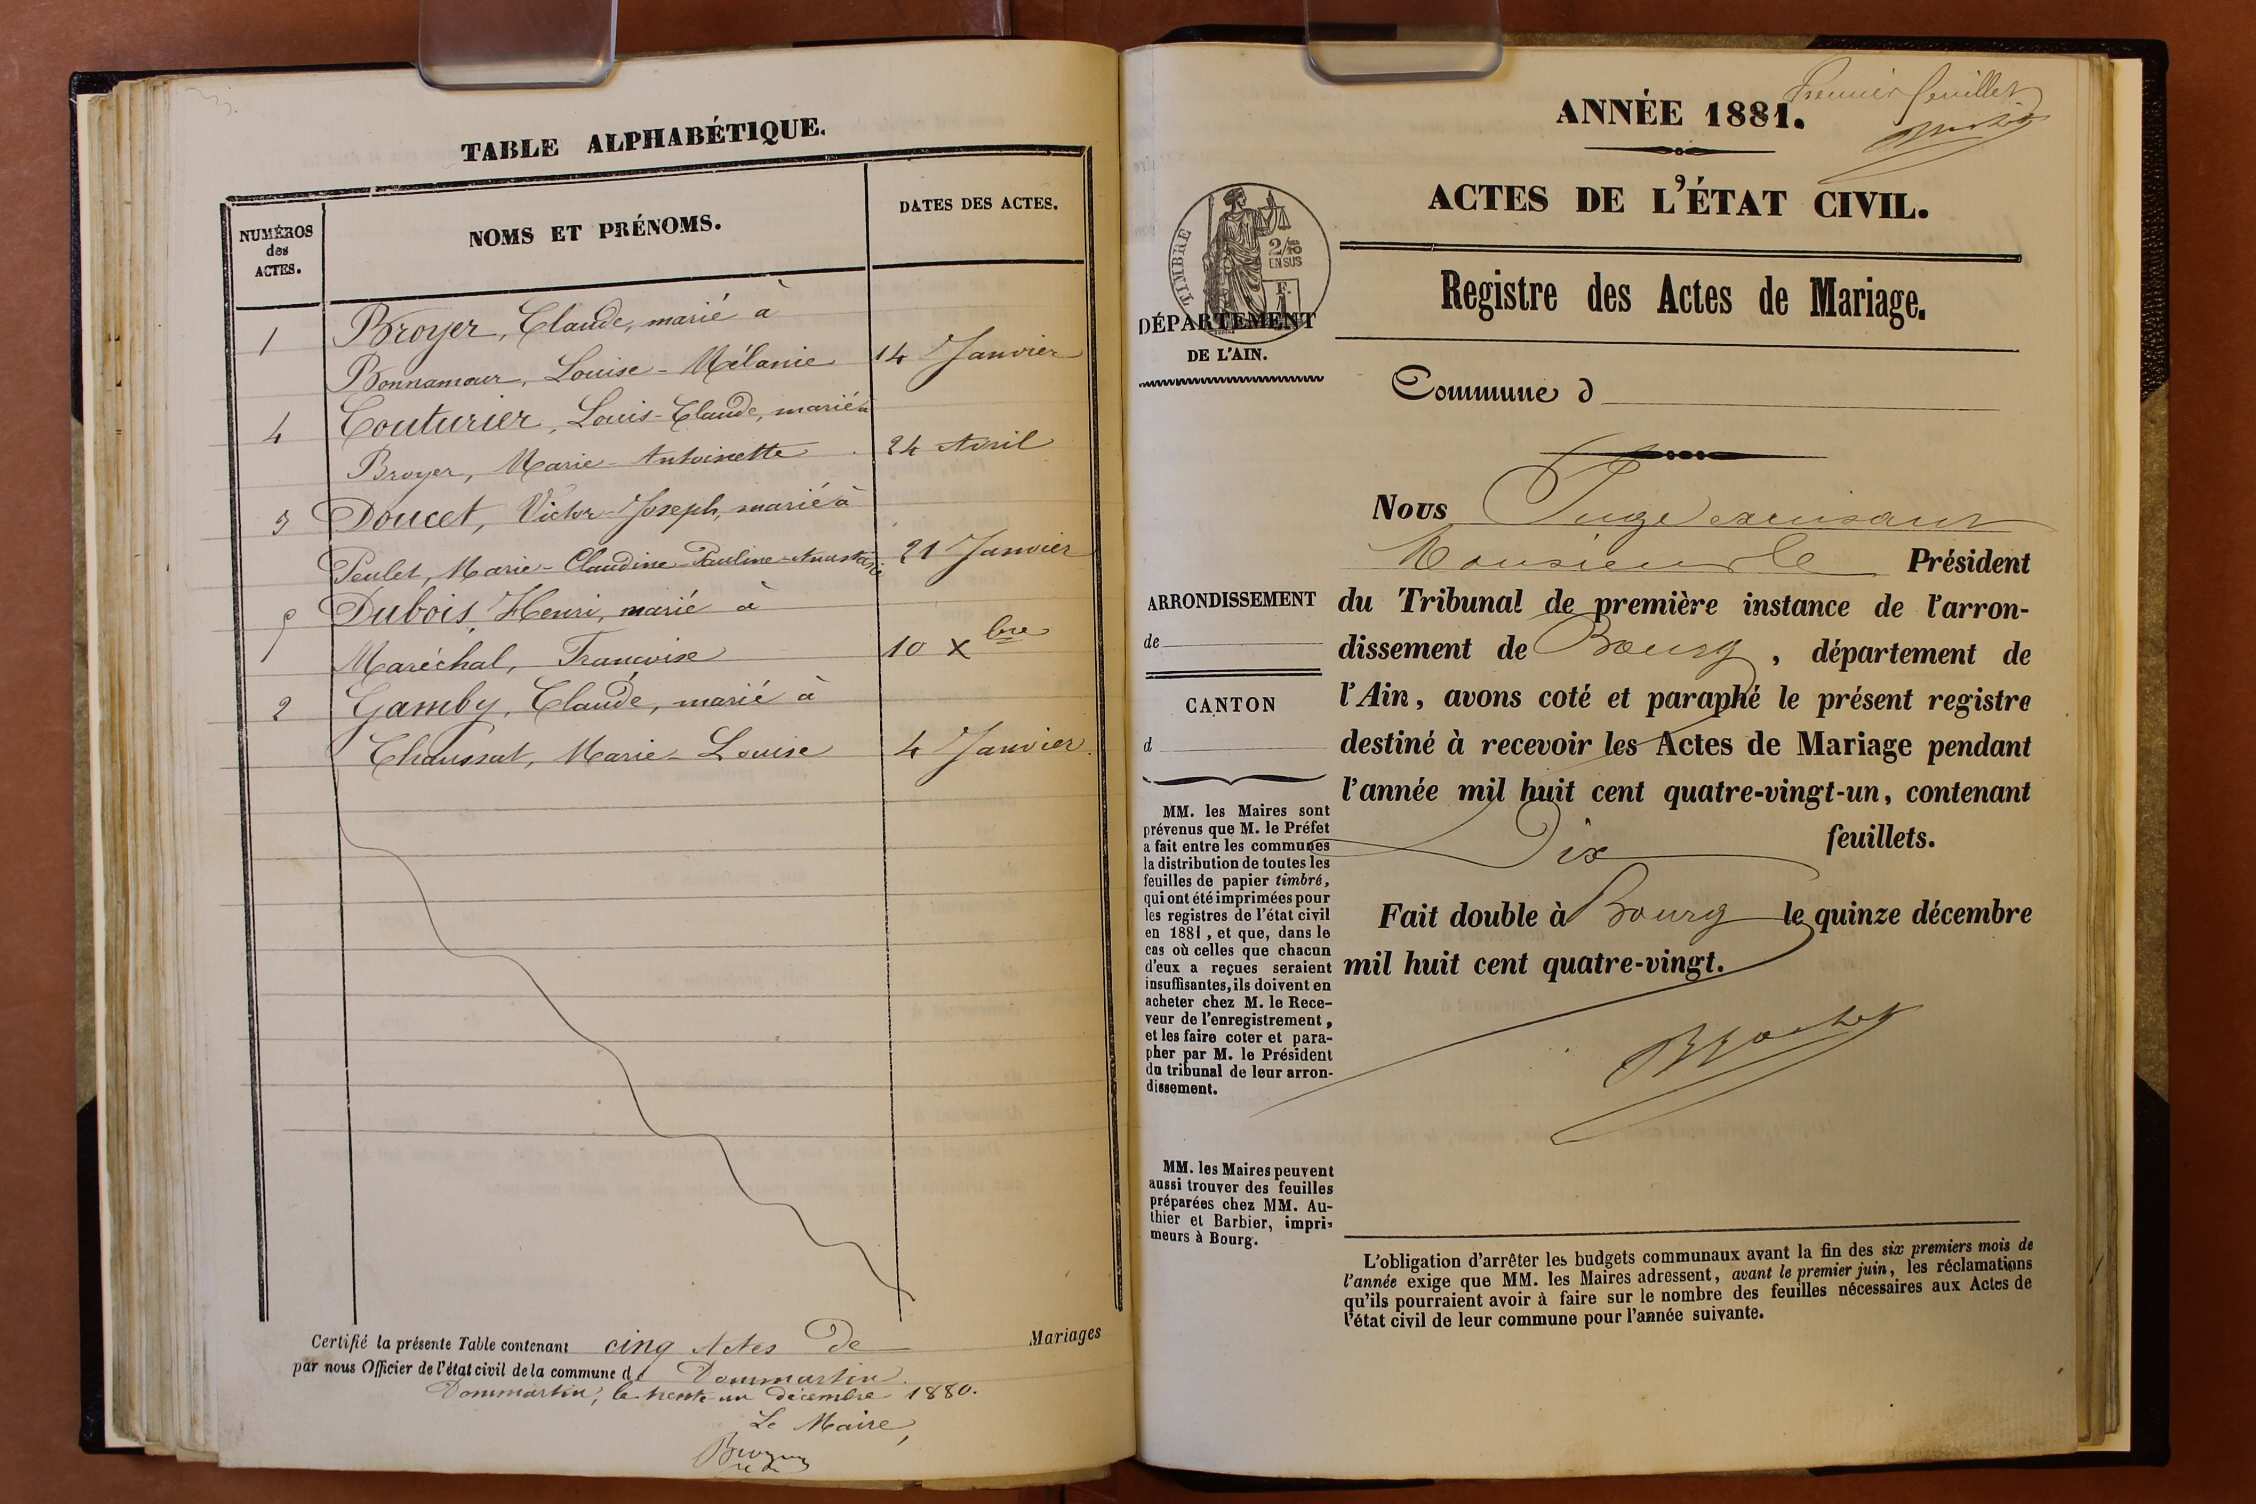 TABLE ALPHABÉTIQUE.
NUMÉROS
des
ACTES.
NOMS ET PRÉNOMS.
DATES DES ACTES.
1 Broyer, Claude, marié à
Bonnamour, Louise-Mélanie 14 Janvier
4 Couturier, Louis-Claude, marié à
Broyer, Marie-Antoinette 24 Avril
3 Doucet, Victor-Joseph, marié à
Peulet, Marie-Claudine-Pauline-Anastasie 21 Janvier
5 Dubois, Henri, marié à
Maréchal, Françoise 10 Xbre
2 Gamby, Claude, marié à
Chaussat, Marie-Louise 4 Janvier.
Certifié la présente Table contenant cinq Actes De Mariages
par nous Officier de l'état civil de la commune de Dommartin.
Dommartin, le trente-un décembre 1880.
Le Maire,
Broyer
Premier feuillet
ANNÉE 1881.
ACTES DE L'ÉTAT CIVIL.
Registre des Actes de Mariage.
TIMBRE
2/10
EN SUS
DÉPARTEMENT
DE L'AIN.
Commune d
Nous Juge
Monsieur le Président
du Tribunal de première instance de l'arron-
dissement de Bourg, département de
l'Ain, avons coté et paraphé le présent registre
destiné à recevoir les Actes de Mariage pendant
l'année mil huit cent quatre-vingt-un, contenant
Dix feuillets.
Fait double à Bourg le quinze décembre
mil huit cent quatre-vingt.
ARRONDISSEMENT
de
CANTON
d
MM. les Maires sont
prévenus que M. le Préfet
a fait entre les communes
la distribution de toutes les
feuilles de papier timbré,
qui ont été imprimées pour
les registres de l'état civil
en 1881, et que, dans le
cas où celles que chacun
d'eux a reçues seraient
insuffisantes, ils doivent en
acheter chez M. le Rece-
veur de l'enregistrement,
et les faire coter et para-
pher par M. le Président
du tribunal de leur arron-
dissement.
MM. les Maires peuvent
aussi trouver des feuilles
préparées chez MM. Au-
thier et Barbier, impri-
meurs à Bourg.
L'obligation d'arrêter les budgets communaux avant la fin des six premiers mois de
l'année exige que MM. les Maires adressent, avant le premier juin, les réclamations
qu'ils pourraient avoir à faire sur le nombre des feuilles nécessaires aux Actes de
l'état civil de leur commune pour l'année suivante.